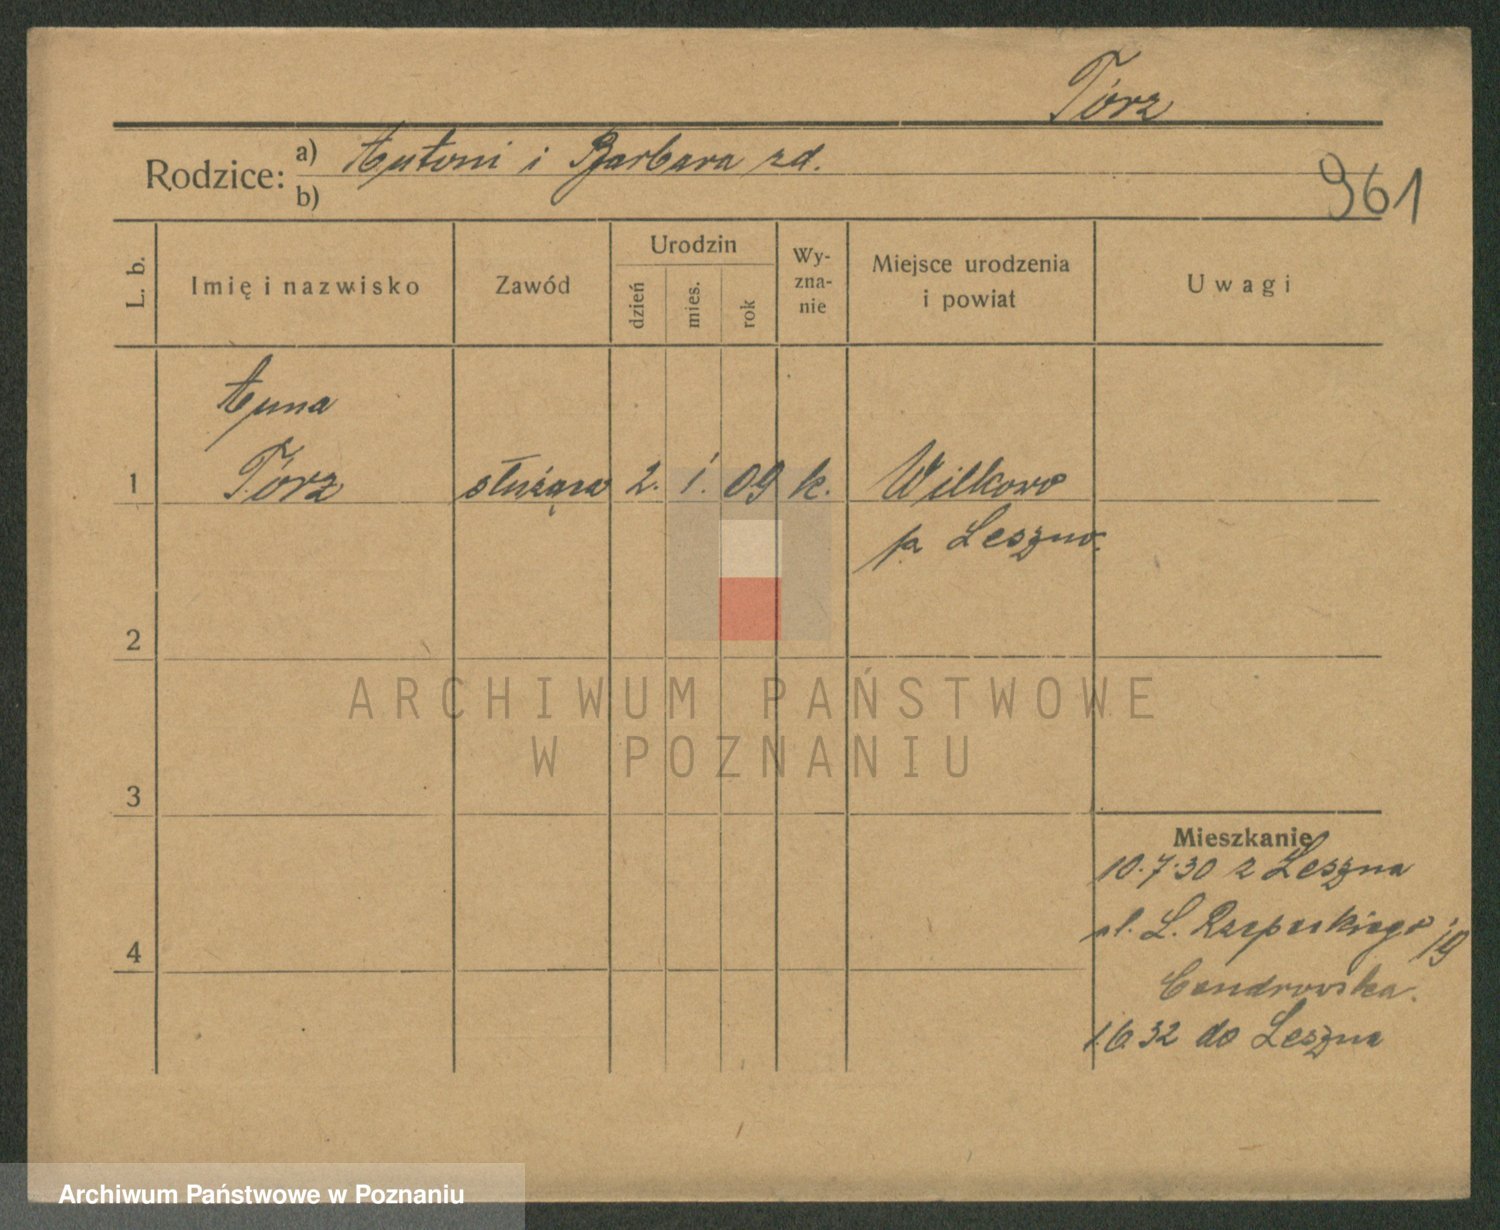 Tórz
Rodzice: a) Antoni i Barbara zd.
b)
961
L. b.
Imię i nazwisko
Zawód
Urodzin
dzień
mies.
rok
Wy-
zna-
nie
Miejsce urodzenia
i powiat
Uwagi
Anna
1 Tórz służąca 2. 1. 09 k. Wilkowo
p. Leszno.
2
ARCHIWUM PAŃSTWOWE
W POZNANIU
3
Mieszkanie
10.7.30 z Leszna
ul. L. Rzepeckiego 19
4
1.6.32 do Leszna
Archiwum Państwowe w Poznaniu